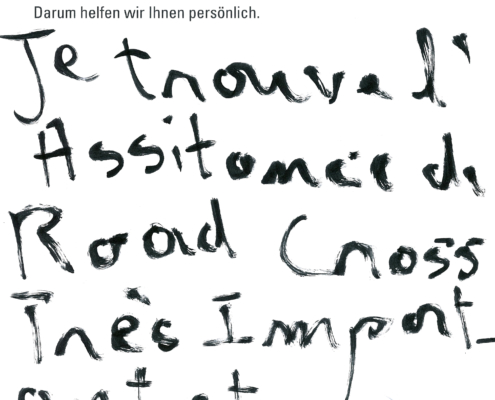 Darum helfen wir Ihnen persönlich.
Je trouva l'
Assitomcie de
Road Cross
Très Import_